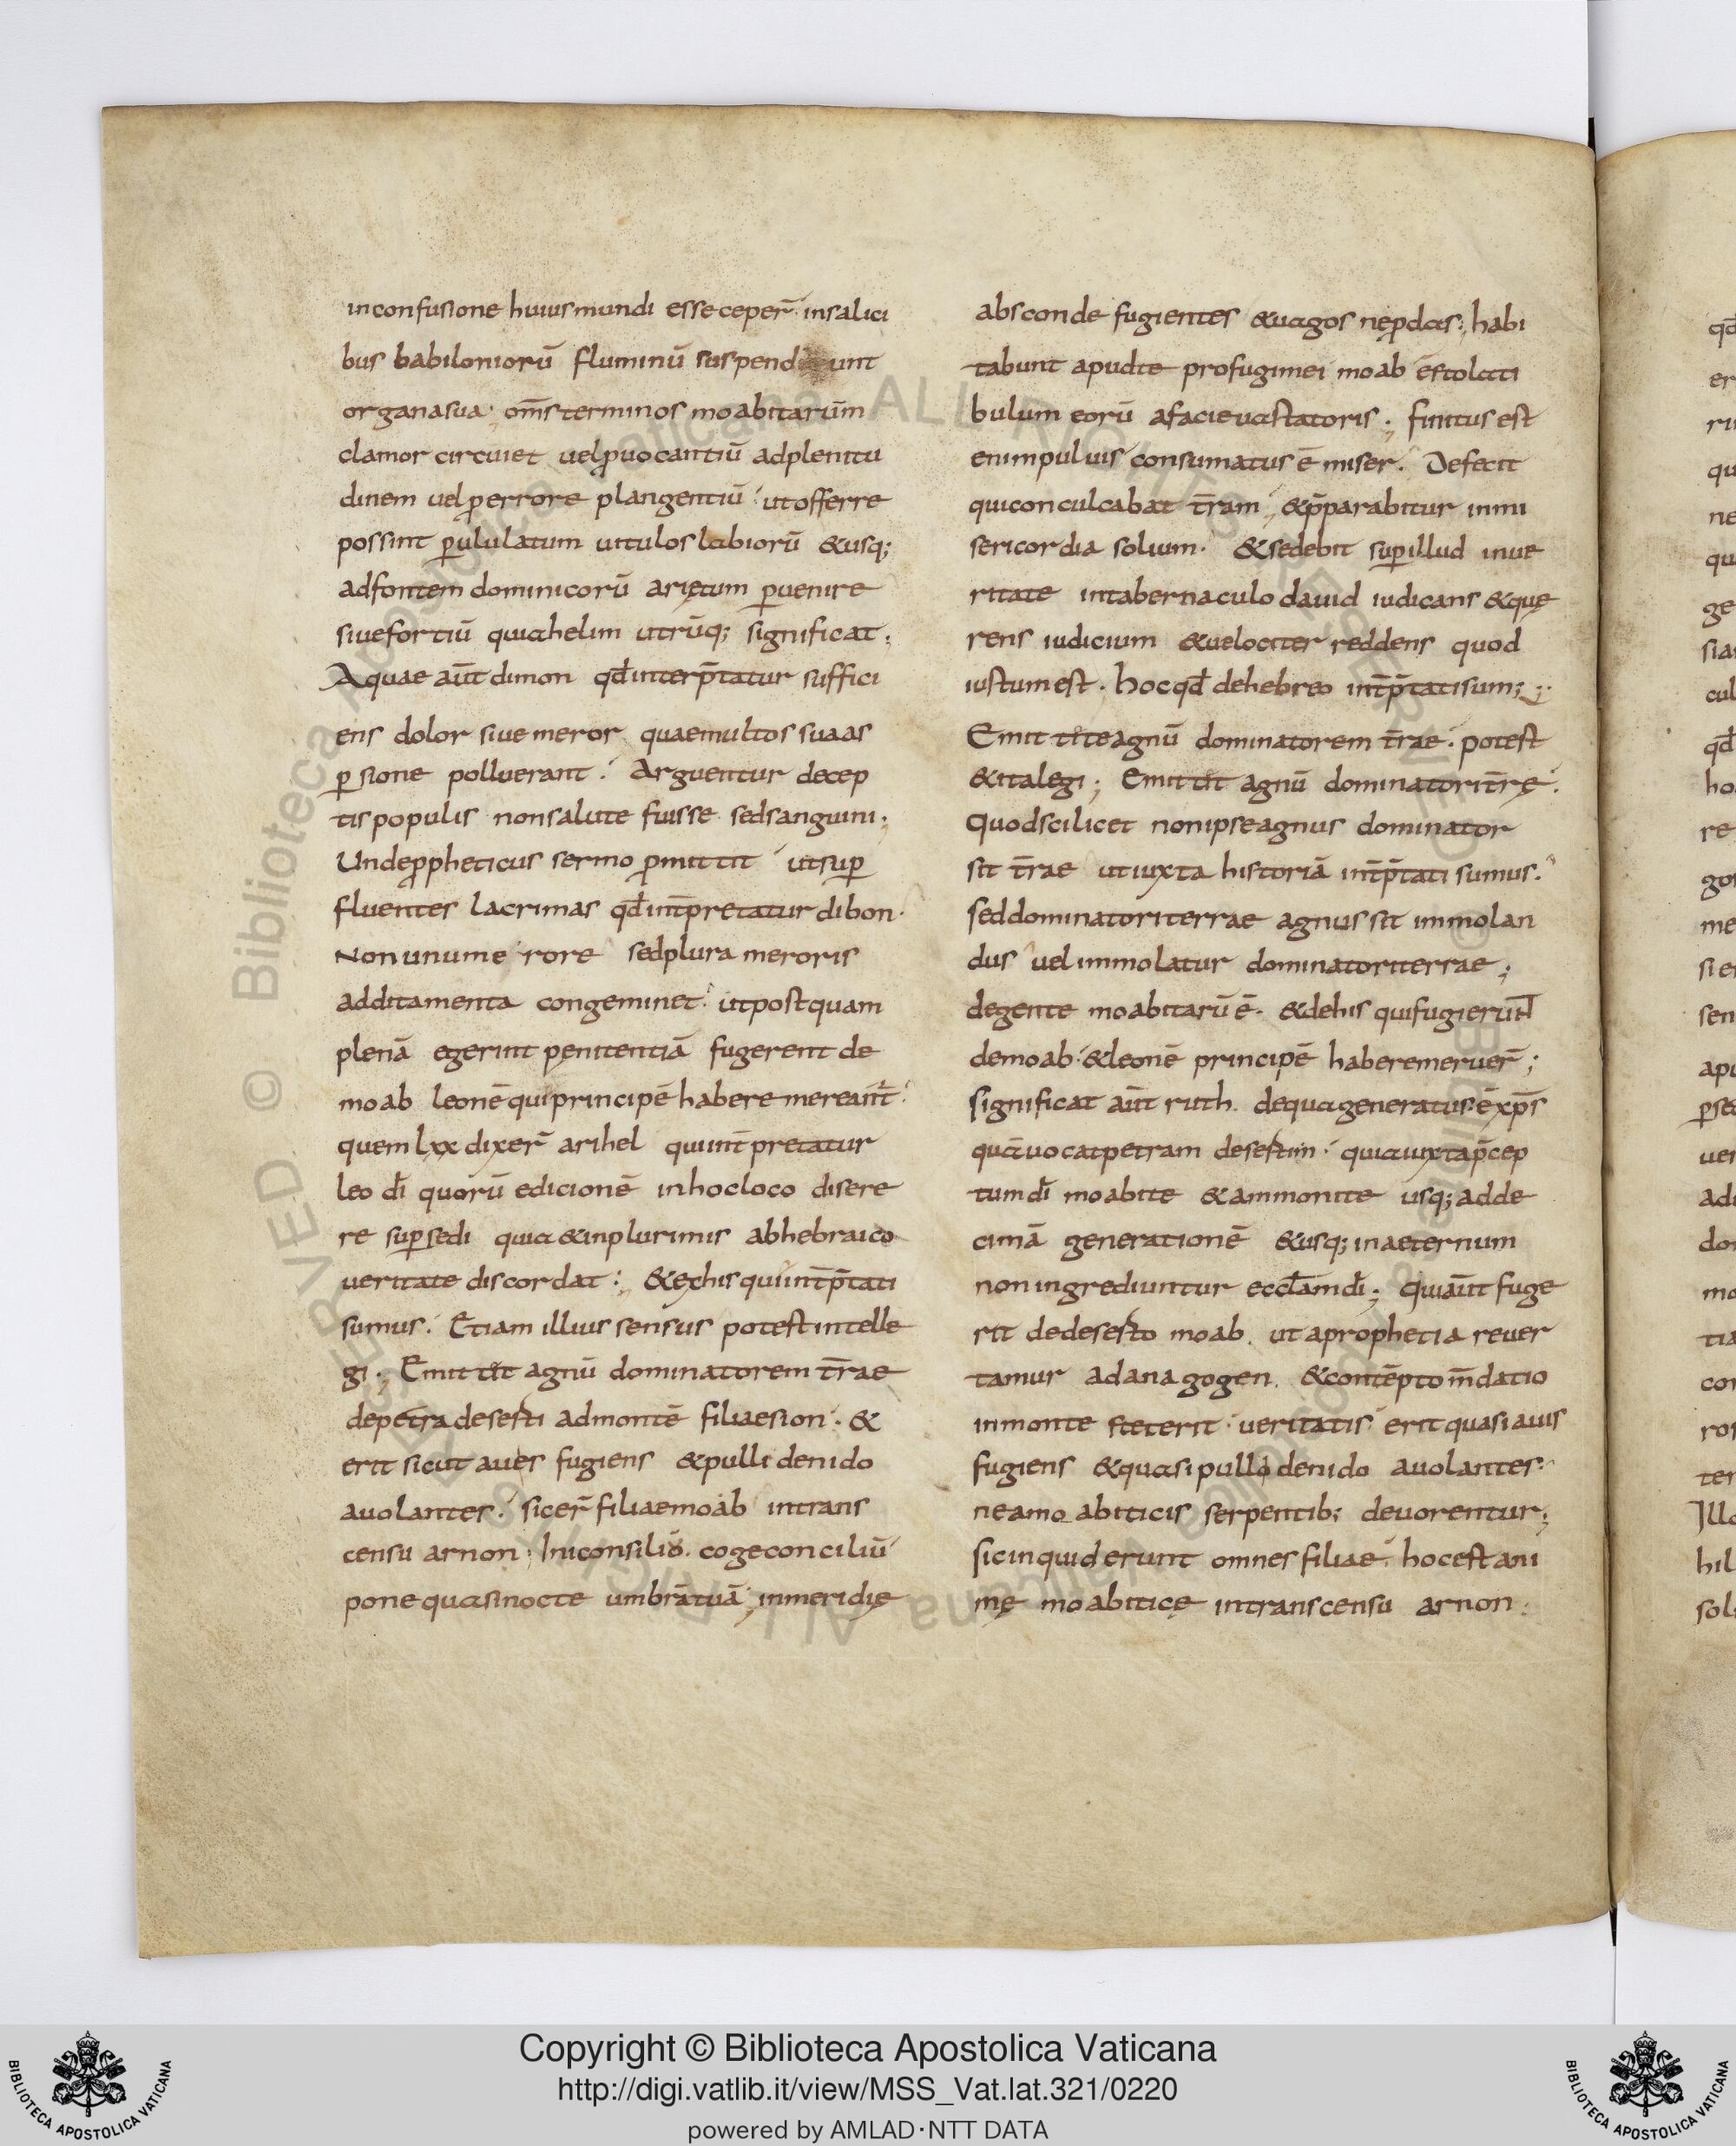 inconfusione huiusmundi esseceper̄ insalici
bus babiloniorū fluminū suspend unt
organasua; om̄s terminos moabitarūm
clamor circuiet uelꝓuocantiū adplenitu
dinem uelꝑerrore plangentiū utofferre
possint ꝑululatum uitulos labiorū &usq;
adfontem dominicorū arietum ꝑuenire
siuefortiū quiahelim utrūq; significat;
Aquae aūt dimon qd̄ interp̄tatur suffici
ens dolor siue meror quaemultos suaas
ꝑsione polluerant. Arguentur decep
tis populis nonsalute fuisse sedsanguini;
Undeꝓpheticus sermo ꝓmittit utsuꝑ
fluentes lacrimas qd̄ int̄pretatur dibon.
Non unume rore sedplura meroris
additamenta congeminet. utpostquam
plenā egerint penitentiā fugerent de
moab leonē qui principē habere mereant̄.
quem lxx dixer̄ arihel qui int̄pretatur
leo dī quorū edicionē inhocloco disere
re suꝑsedi quia &inplurimis abhebraico
ueritate discordat:, &exhis qui int̄p̄tati
sumus. Etiam illius sensus potest intelle
gi; Emittit agnū dominatorem t̄rae
depetra deserti admontē filiaesion. &
erit sicut aues fugiens &pulli denido
auolantes. sicer̄ filiaemoab intrans
censu arnon; Iniconsiliō. cogeconciliū
pone quasinocte umbrātuā; inmeridie
absconde fugientes &uagos neꝓdas; habi
tabunt apudte profugimei moab ēstolati
bulum eorū afacieuastatoris; finitus est
enimpuluis consumatus ē miser. Defecit
quiconculcabat t̄ram; &p̄parabitur inmi
sericordia solium. &sedebit suꝑillud inue
ritate intabernaculo dauid iudicans &quę
rens iudicium &uelociter reddens quod
iustum est. hocqd̄ dehebreo int̄p̄tatisum;
Emittite agnū dominatorem t̄rae. potest
&italegi; Emittit agnū dominatorit̄rę.
Quodscilicet nonipseagnus dominator
sit t̄rae utiuxta historiā int̄p̄tati sumus.
seddominatoriterrae agnus sit immolan
dus uelimmolatur dominatoriterrae;
degente moabitarū ē. &dehis quifugierunt
demoab. &leonē principē haberemeruer̄;
Significat aūt ruth. dequageneratus ē xp̄s
quāuocatpetram desertim. quiaiuxtap̄cep
tumdī moabite &ammonite usq; adde
cimā generationē &usq; inaeternum
noningrediuntur eccl̄amdī; Quiaūt fuge
rit dedeserto moab. ut aprophetia reuer
tamur adanagogen. &contēpto m̄datio
inmonte steterit ueritatis erit quasi auis
fugiens &quasi pullo denido auolantes.
neamoabiticis serpentib; deuorentur;
sicinquid erunt omnes filiae. hocest ani
mę moabiticę intranscensu arnon.
Copyright © Biblioteca Apostolica Vaticana
http://digi.vatlib.it/view/MSS_Vat.lat.321/0220
powered by AMLAD·NTT DATA